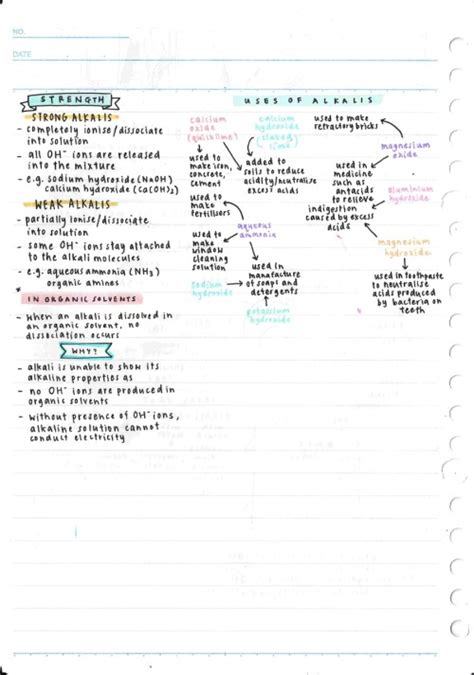 NO.
DATE
STRENGTH
STRONG ALKALIS
- completely ionise/dissociate
into solution
- all OH⁻ ions are released
into the mixture
- e.g. sodium hydroxide (NaOH)
calcium hydroxide (Ca(OH)₂)
WEAK ALKALIS
- partially ionise/dissociate
into solution
- some OH⁻ ions stay attached
to the alkali molecules
- e.g. aqueous ammonia (NH₃)
organic amines
* IN ORGANIC SOLVENTS
- when an alkali is dissolved in
an organic solvent, no
dissociation occurs
WHY?
- alkali is unable to show its
alkaline properties as
- no OH⁻ ions are produced in
organic solvents
- without presence of OH⁻ ions,
alkaline solution cannot
conduct electricity
USES OF ALKALIS
calcium
oxide
(quicklime)
used to
make iron,
concrete,
cement
used to
make
fertilisers
calcium
hydroxide
(slaked
lime)
added to
soils to reduce
acidity/neutralise
excess acids
aqueous
ammonia
used to
make
window
cleaning
solution
used in
manufacture
of soaps and
detergents
sodium
hydroxide
potassium
hydroxide
used to make
refractory bricks
magnesium
oxide
used in
medicine
such as
antacids
to relieve
indigestion
caused by excess
acids
aluminium
hydroxide
magnesium
hydroxide
used in toothpaste
to neutralise
acids produced
by bacteria on
teeth